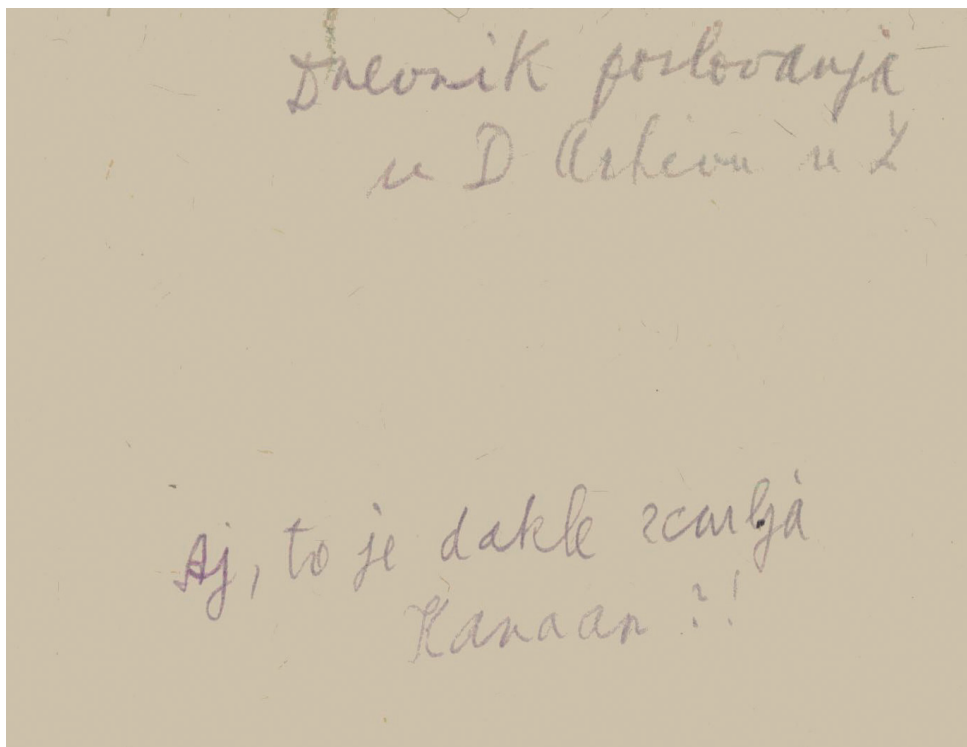 Dnevnik poslovanja
u D Arhivu u Z
Aj, to je dakle zemlja
Kanaan?!